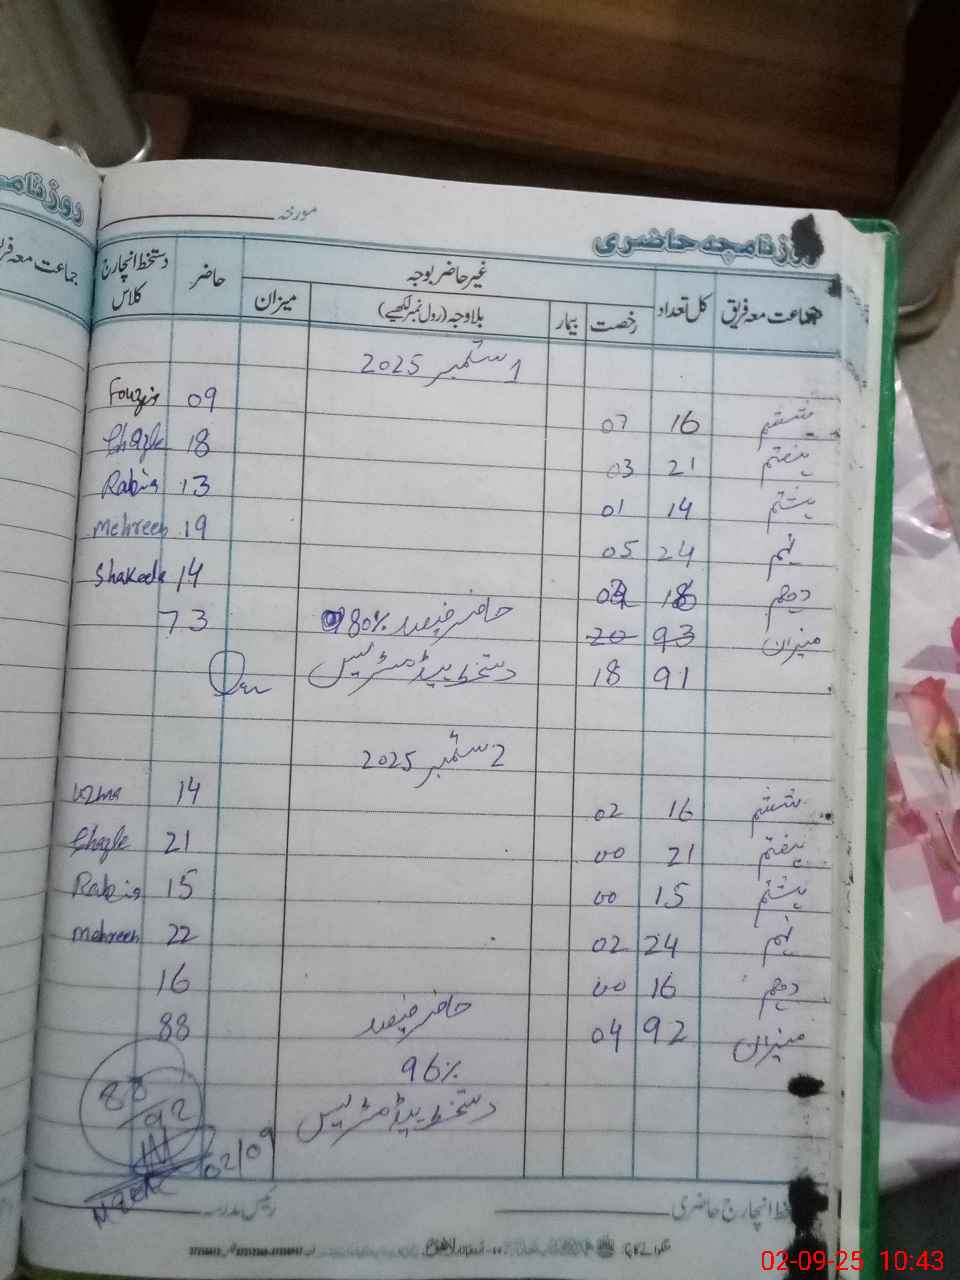 روزنامچہ حاضری مورخہ
جماعت معہ فریق کل تعداد غیر حاضر بوجہ حاضر دستخط انچارج کلاس
رخصت بیمار بلاوجہ (رول نمبر لکھیے) میزان
1 ستمبر 2025
ششم 16 07 09 Fouzia
ہفتم 21 03 18
ہشتم 14 01 13 Rabia
نہم 24 05 19 Mehreen
دہم 14 Shakeela
میزان 93 20 حاضر فیصد 80% 73
91 18 دستخط ہیڈ مسٹریس
2 ستمبر 2025
ششم 16 02 14 Uzma
ہفتم 21 00 21
ہشتم 15 00 15 Rabia
نہم 24 02 22 Mehreen
دہم 16 00 16
میزان 92 04 حاضر فیصد 88
96%
دستخط ہیڈ مسٹریس
88
92
02/09
دستخط انچارج حاضری رئیس مدرسہ
روزنامچہ
جماعت معہ فریق
02-09-25 10:43